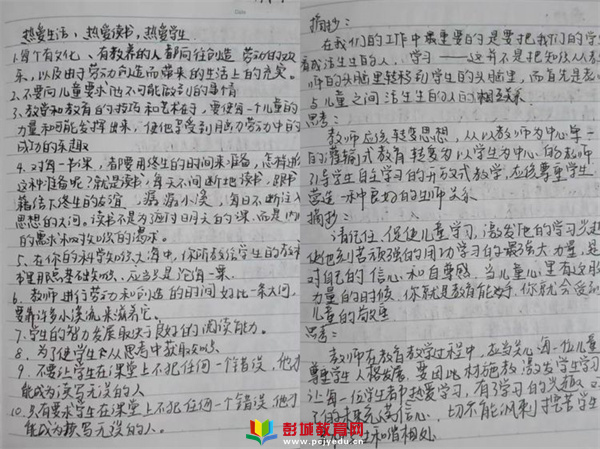 热爱生活、热爱读书，热爱学生
1.每个有文化、有教养的人都向往创造劳动的欢
乐，以及由于劳动创造而带来的生活上的充实。
2.不要向儿童要求他不可能做到的事情
3.教学和教育的技巧和艺术
力量和可能发挥出来，使他享受到脑力劳动中的
成功的乐趣
4.对每一节课，都要用终生的时间来准备，怎样进行
这种准备呢？就是读书，每天不间断地读书，跟书
籍结下终生的友谊，潺潺小溪，每日不断注入
思想的大河。读书不是为了应付明天的课，而是内心
的需求和对知识的渴求。
5.在你的科学知识大海中，你所教给学生的教科
书里那点基础知识，应当只是沧海一粟。
6.教师进行劳动和创造的时间好比一条大河，
要靠许多小溪流来滋养它。
7.学生的智力发展取决于良好的阅读能力。
8.为了使学生从思考中获取知识
9.不要让学生在课堂上不犯任何一个错误，他才
能成为读写无误的人
10.只有要求学生在课堂上不犯任何一个错误，他们
能成为读写无误的人。
摘抄：
在我们的工作中最重要的是要把我们的学生
看成活生生的人，学习——这并不是把知识从教
师的头脑里转移到学生的头脑里，而首先是
与儿童之间活生生的人的相互关系
思考：
教师应该转变思想，从以教师为中心单一
的灌输式教育转变为以学生为中心的教师
引导学生自主学习的开放式教学，应该尊重学生
营造一种良好的生师关系
摘抄：
请记住，促使儿童学习，激发他的学习兴趣
使他刻苦顽强的用功学习的最强大力量，是
对自己的信心和自尊感。当儿童心里有这股
力量的时候，你就是教育能手，你就会受到
儿童的敬重
思考：
教师在教育教学过程中，应当关心每一位儿童
尊重学生人格发展，要因地材施教激发学生学习
让每一位学生都热爱学习，有了学习的兴趣
的未来充满信心，切不能讽刺挖苦学生
和谐相处
彭城教育网
www.pcjyedu.cn